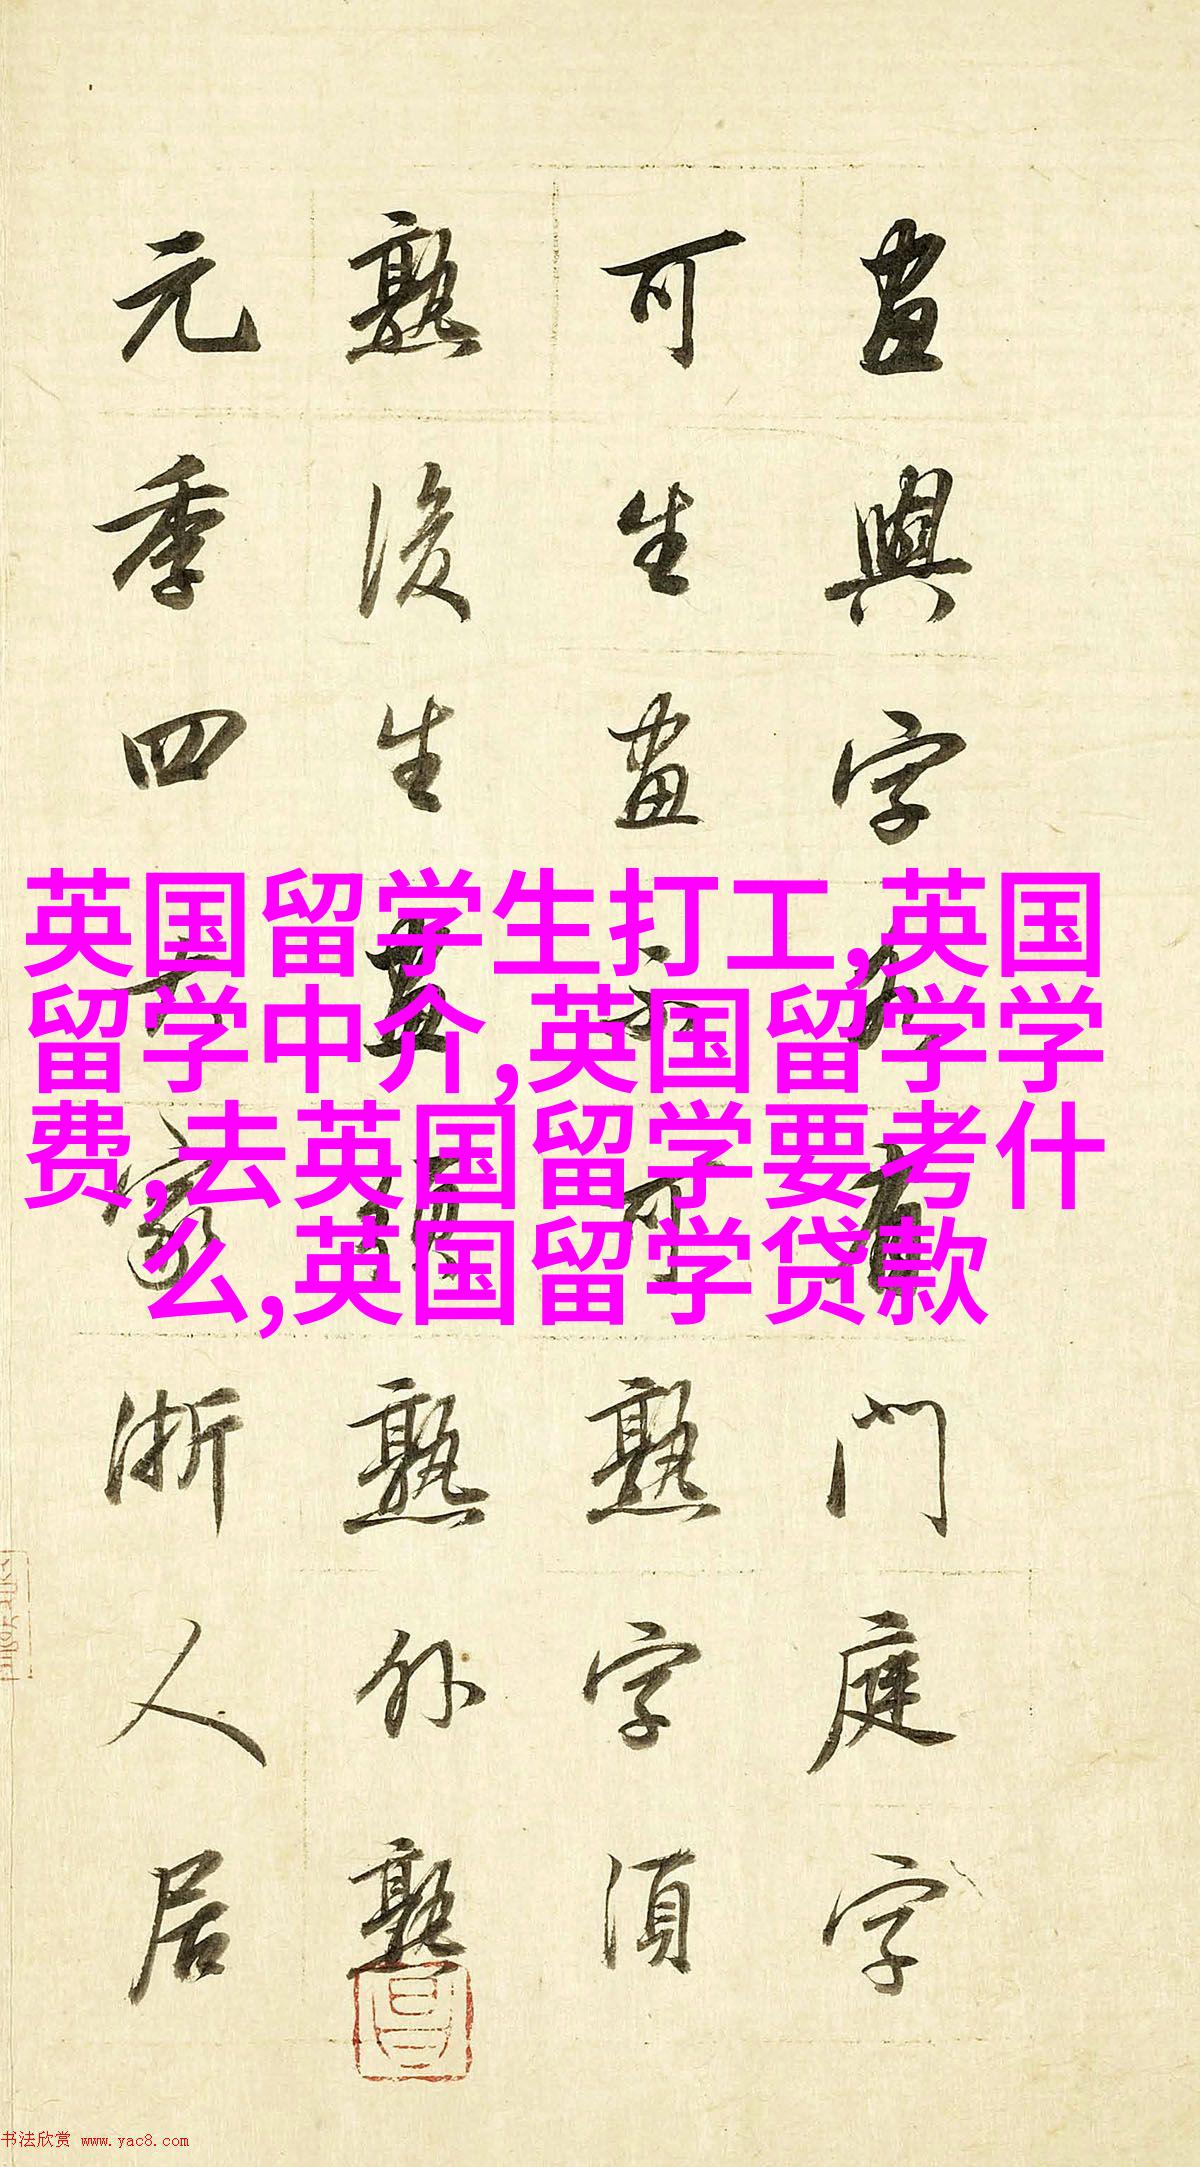 畫與字各有門庭字
可生畫不可熟字須
熟後生畫須熟外熟
元季四大家浙人居
英国留学生打工,英国
留学中介,英国留学学
费,去英国留学要考什
么,英国留学贷款
书法欣赏 www.yac8.com